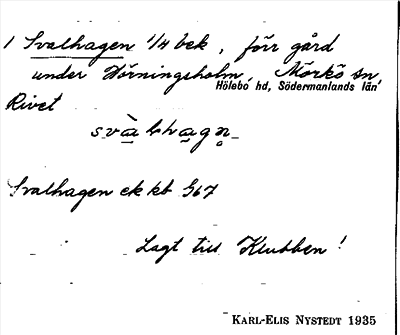 1 Svalhagen 1/4 bek, förr gård
under Hörningsholm, Mörkö sn,
Hölebo hd, Södermanlands län
Rivet
Svalhagen ek kb 567
Lagt till Klubben!
KARL-ELIS NYSTEDT 1935